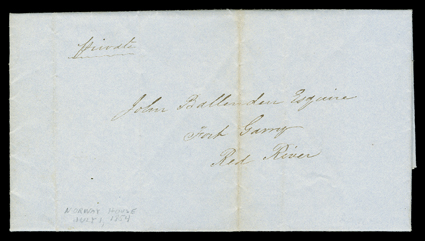 Private
John Ballenden Esquire
Fort Garry
Red River
NORWAY HOUSE
1854